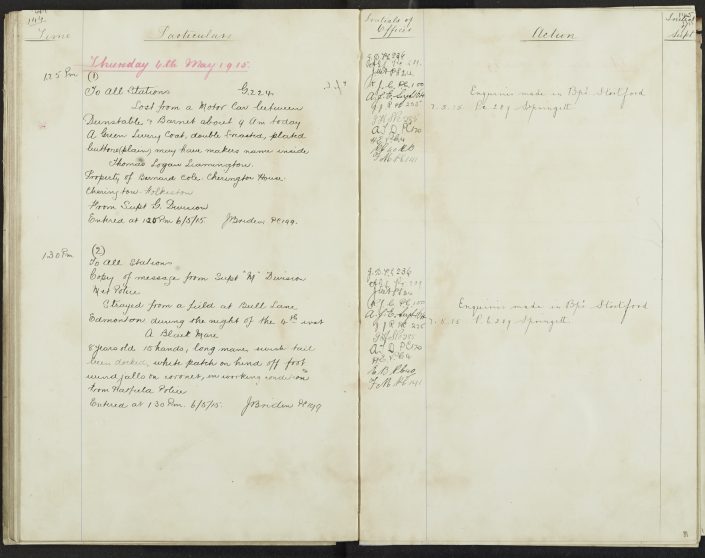 Time
Particulars
Thursday 6th May 1915.
1.25 Pm (1)
To All Stations G.224.
Lost from a Motor Car between
Dunstable & Barnet about 9 Am today
A Green Livery Coat, double breasted, plated
buttons (plain) may have makers name inside
Thomas Logan Leamington.
Property of Bernard Cole. Cherington House.
Cherington
From Supt G. Division
Entered at 1.25 Pm 6/5/15. JBriden PC 199.
1.30 Pm (2)
To All Stations
Copy of message from Supt "N" Division
Met Police
Strayed from a field at Bull Lane
Edmonton during the night of the 4th inst
A Black Mare
8 years old 15 hands, long mane, swish tail
been docked, white patch on hind off foot
wind galls on coronet, in working condition
From Hatfield Police
Entered at 1.30 Pm. 6/5/15. JBriden PC 199
Initials of
Officers
Action
Initial
of
Supt
J.D. PC 236
A.J.C. PC 100
A.D. PC 170
F.M. PC 141
Enquiries made in Bp's Stortford
7.5.15 Pc 289 Springett
J.D. PC 236
A.J.C. PC 100
A.D. PC 170
F.M. PC 141
Enquiries made in Bp's Stortford
7.5.15 Pc 289 Springett